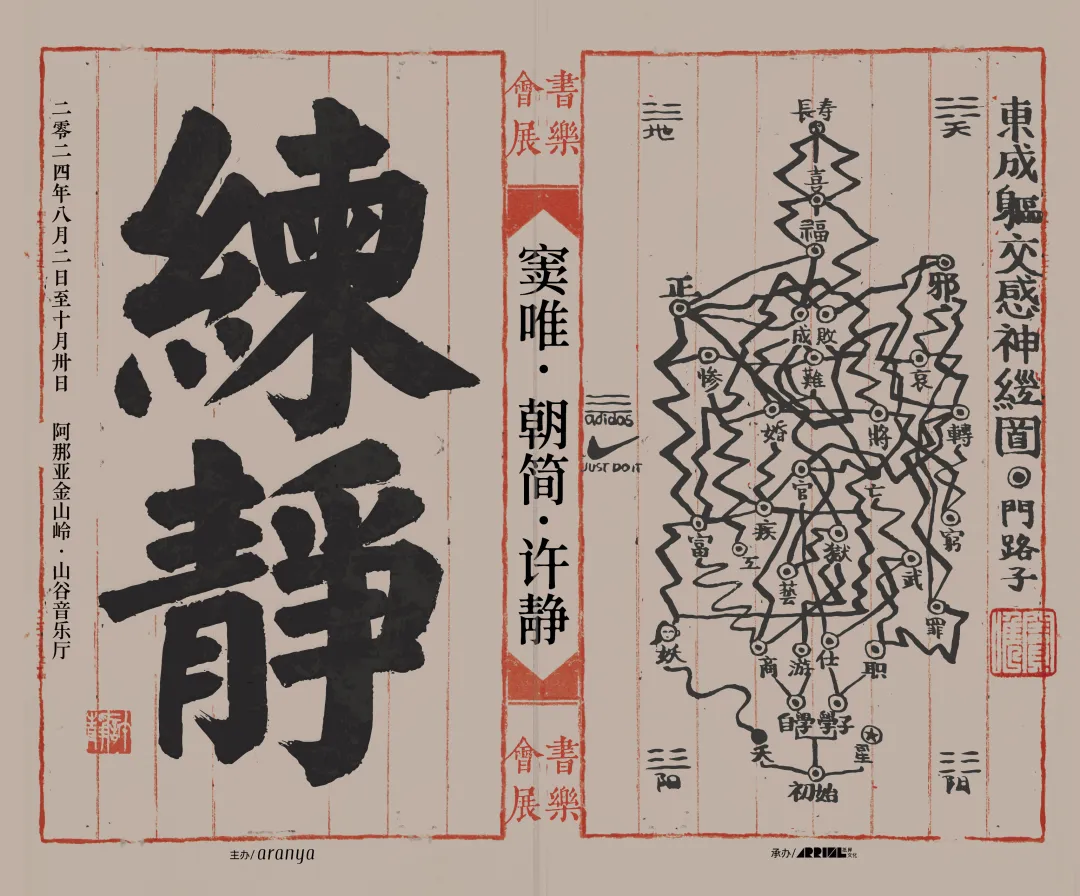 東成軀交感神經圖
門路子
三天
三地
長寿
喜
福
正
邪
成
敗
惨
難
哀
婚
將
轉
官
亡
疾
窮
富
工
獄
藝
武
罪
妖
商
游
仕
职
自學
學子
夭
星
初始
阳
阳
adidas
JUST DO IT
書樂
會展
窦唯·朝简·许静
書樂
會展
練靜
二零二四年八月二日至十月卅日 阿那亚金山岭·山谷音乐厅
主办/aranya
承办/ARRIVAL